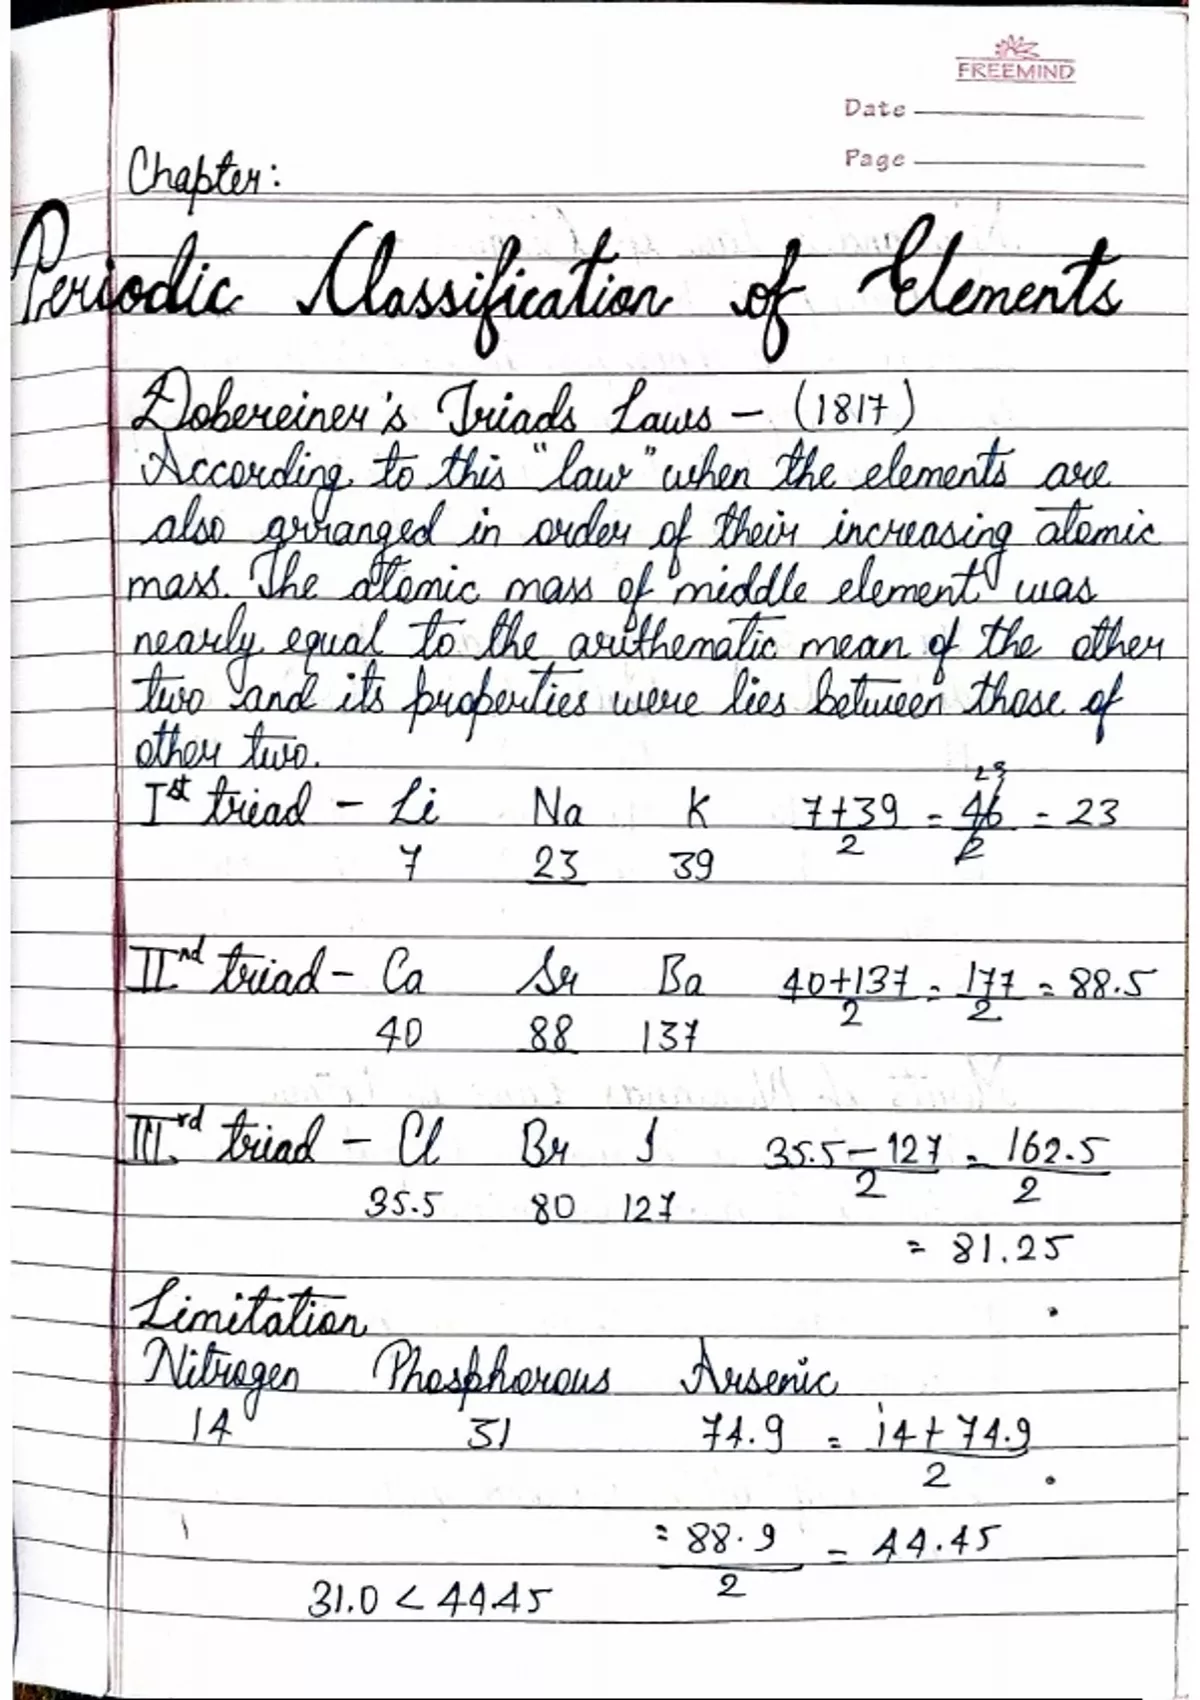 FREEMIND
Date
Page
Chapter:
Periodic Classification of Elements
Dobereiner's Triads Laws – (1817)
According to this "law" when the elements are
also arranged in order of their increasing atomic
mass. The atomic mass of middle element was
nearly equal to the arithematic mean of the other
two and its properties were lies between those of
other two.
Ist triad – Li Na K 7+39/2 = 46/2 23 = 23
7 23 39
IInd triad – Ca Sr Ba 40+137/2 = 177/2 = 88.5
40 88 137
IIIrd triad – Cl Br I 35.5–127/2 = 162.5/2
35.5 80 127
= 81.25
Limitation
Nitrogen Phosphorous Arsenic
14 31 74.9 = 14+74.9/2
= 88.9/2 = 44.45
31.0 < 44.45